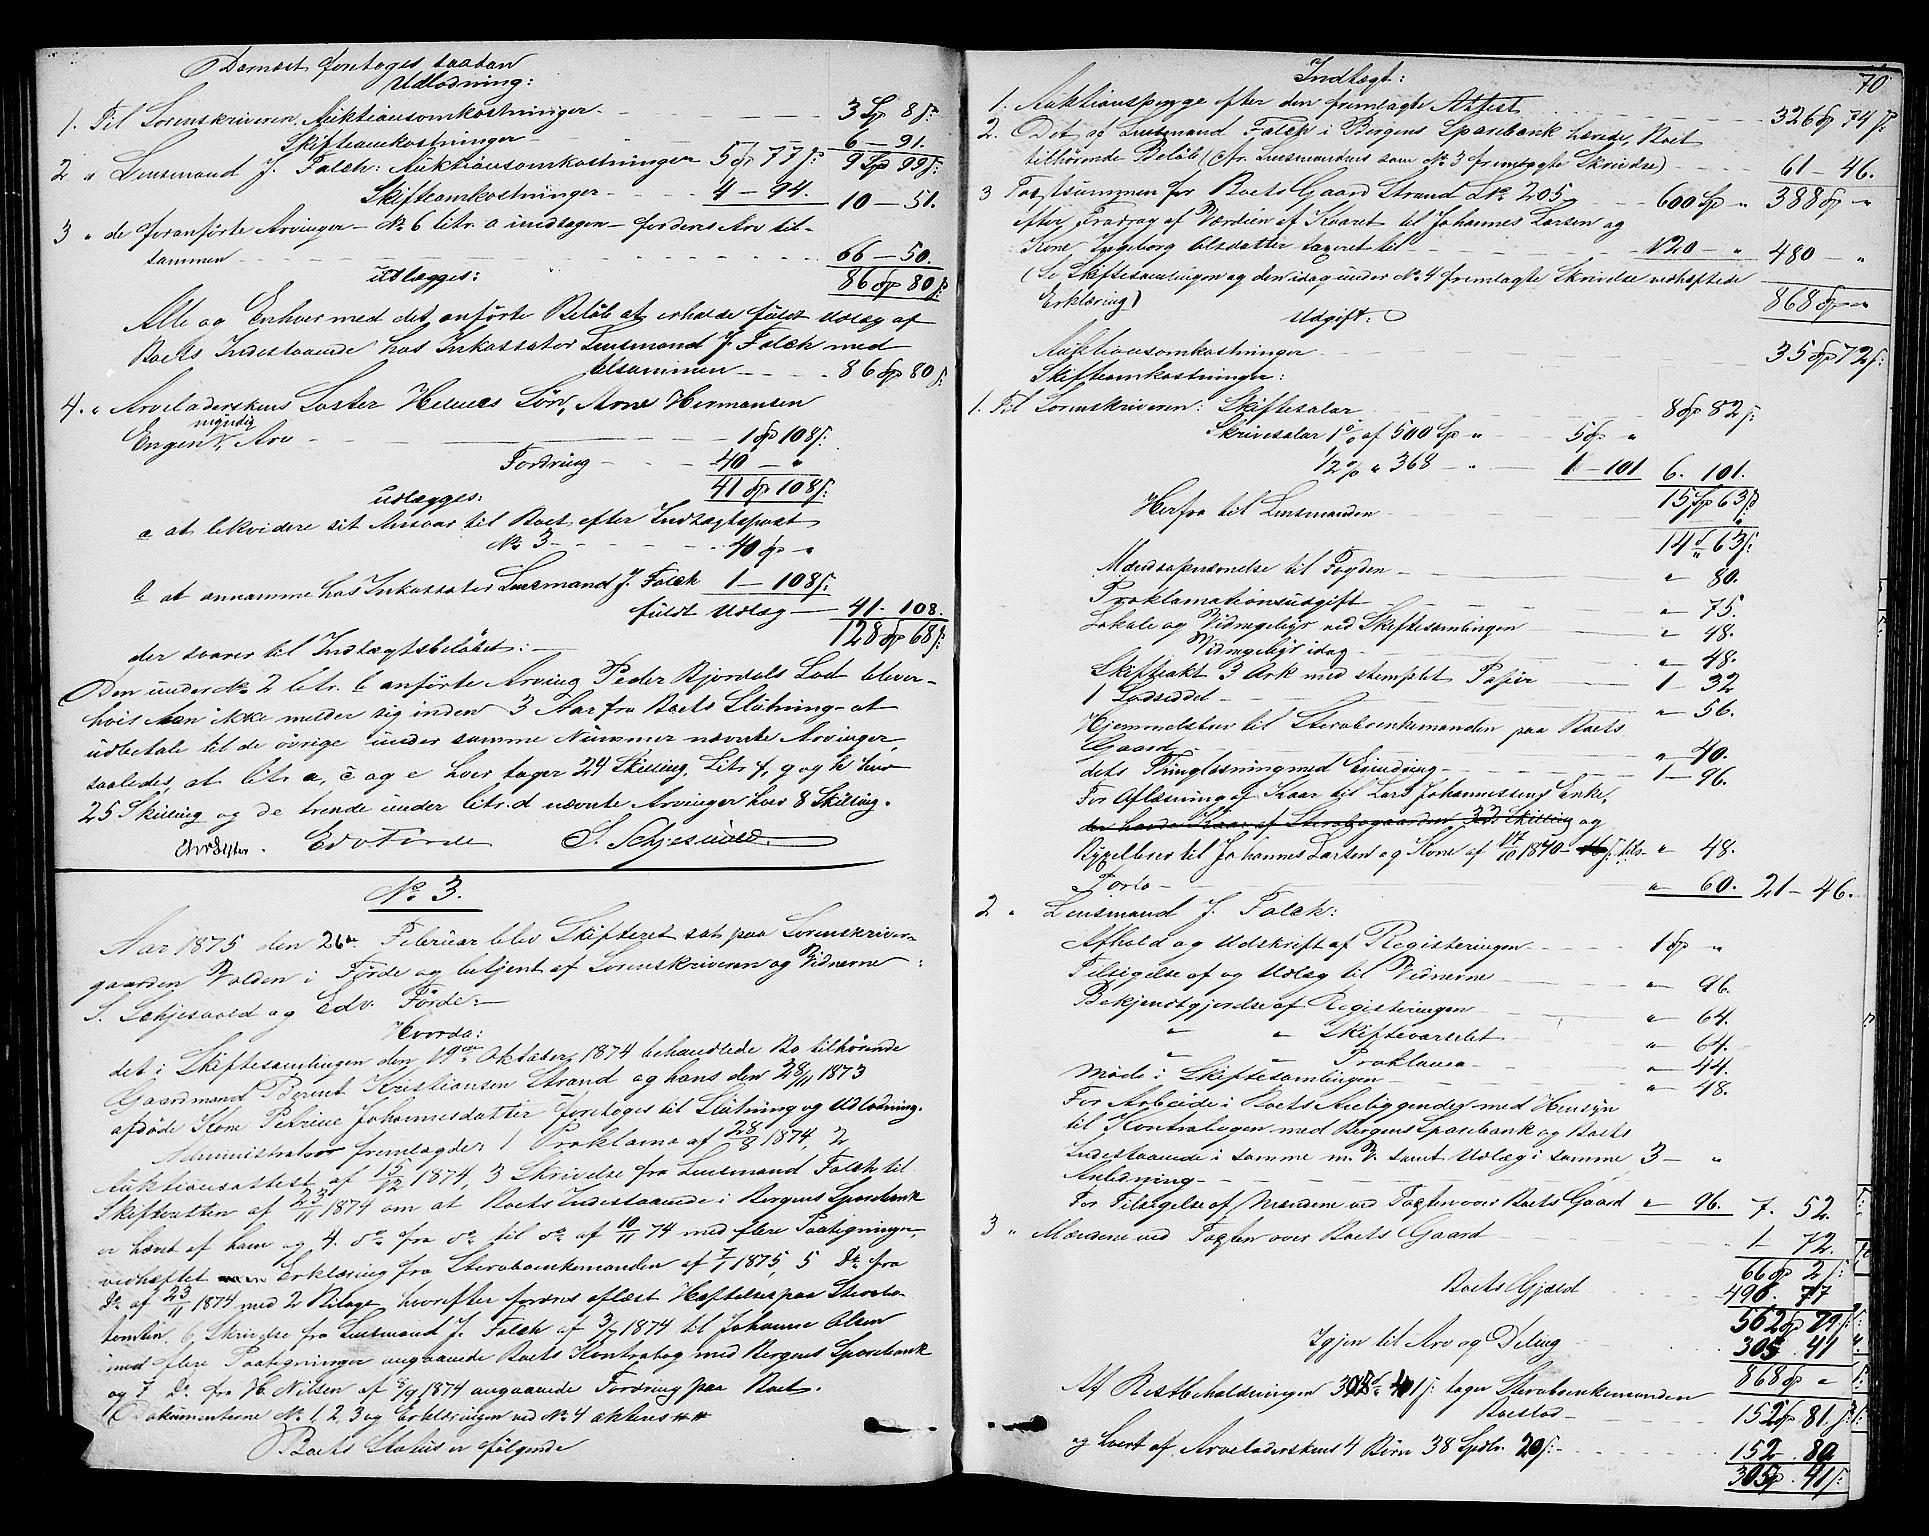 Dernæst foretoges saadan
Udlodning:
1. Til Sorenskriveren, Auktionsomkostninger 3 Sp 8 ß:
Skifteomkostninger 6 – 91.
9 Sp 99 ß:
2 " Lensmand J. Falch: Auktionsomkostninger 5 Sp 77 ß:
Skifteomkostninger 4 – 94. 10 – 51.
3 " de foranførte Arvinger – No 6 litr. a undtagen – forderes Arv til-
sammen 66 – 50.
udlægges: 86 Sp 80 ß:
Alle og Enhver med det anførte Beløb at erholde fuldt Udlæg af
Boets Indestaaende hos Inkassator Lensmand J. Falch med
tilsammen 86 Sp 80 ß:
4. " Arveladerskens Søster Helenes Søn, Arne Hermansen
myndig
Engen, Arv 1 Sp 108 ß:
Fordring 40 – "
41 Sp 108 ß:
udlægges:
a at likvidere sit Ansvar til Boet efter Indtægtspost
No 3 40 Sp "
b at annamme hos Inkassator Lensmand J. Falch 1 – 108 ß:
fuldt Udlæg 41. 108.
128 Sp 68 ß:
der svarer til Indtægtsbeløbet:
Den under No 2 litr. b anførte Arving Peder Bjordals Lod bliver –
hvis han ikke melder sig inden 3 Aar fra Boets Slutning – at
udbetale til de øvrige under samme Nummer nævnte Arvinger,
saaledes, at litr. a, c og e hver tager 24 Skilling, Litr f, g og h hver
25 Skilling og de trende under litr. d nævnte Arvinger hver 8 Skilling.
Edv Førde S. Schjesvold
No 3.
Aar 1875 den 26de Februar blev Skifteret sat paa Sorenskriver-
gaarden Volden i Førde og betjent af Sorenskriveren og Vidnerne:
S. Schjesvold og Edv. Førde: –
Hvorda:
det i Skiftesamlingen den 19de Oktober 1874 behandlede Bo tilhørende
Gaardmand Bernt Kristiansen Strand og hans den 28/11 1873
afdøde Kone Petrine Johannesdatter foretoges til Slutning og Udlodning.
Administrator fremlagde 1 Proklama af 28/8 1874, 2
Auktionsattest af 15/12 1874, 3 Skrivelse fra Lensmand Falch til
Skifteretten af 23/11 1874 om at Boets Indestaaende i Bergens Sparebank
er hævet af ham og 4. do fra do til do af 10/11 74 med flere Paategninger,
vedhæftet Erklæring fra Stervboenkemanden af 7/1 1875, 5 do fra
do af 23/11 1874 med 2 Bilage, hvorefter fordres aflæst Heftelser paa Stervbo-
6. Skrivelse fra Lensmand J. Falch af 3/7 1874 til Johanne Olsen
med flere Paategninger angaaende Boets Kontrabog med Bergens Sparebank
og 7 do fra H. Nilsen af 8/9 1874 angaaende Fordring paa Boet.
Dokumenterne No 1, 2, 3 og Erklæringen ved No 4 aktens **
Boets Status er følgende
70
Indtægt:
1. Auktionspenge efter den fremlagte Attest 326 Sp 74 ß:
2. Det af Lensmand Falch i Bergens Sparebank hævede, Boet
tilhørende Beløb (cfr. Lensmandens som No 3 fremlagte Skrivelse) 61 – 46.
388 Sp "
3 Taxtsummen for Boets Gaard Strand L No 205 600 Sp "
efter Fradrag af Værdien af Kaaret til Johannes Larsen og
Kone Ingeborg Olsdatter taxeret til 120 – " 480 – "
(Se Skiftesamlingen og den idag under No 4 fremlagte Skrivelse vedhæftede
Erklæring) 868 Sp "
Udgift:
Auktionsomkostninger 35 Sp 72 ß:
Skifteomkostninger:
1. Til Sorenskriveren: Skiftesalær 8 Sp 82 ß:
Skrivesalær 1 % af 500 Sp " 5 Sp "
1/2 % " 368 – " 1 – 101 6. 101.
15 Sp 63 ß
Herfra til Lensmanden
14 " 63 ß:
Mændsopnævnelse til Fogden " 80.
Proklamationsudgift " 75.
Lokale og Vidnegebyr ved Skiftesamlingen " 48.
Vidnegebyr idag " 48.
Skifteakt 3 Ark med stemplet Papir 1 – 32
1 Lodseddel " 56.
Hjemmelsbrev til Stervboenkemanden paa Boets
Gaard " 40.
dets Thinglæsning med Gjendring 1 – 96.
For Aflæsning af Kaar til Lars Johannessens Enke,
der havde Kaar af Stervbogaarden 32 Skilling og
Bygselbrev til Johannes Larsen og Kone af 14/10 1870 – 16 ß: tils. " 48.
Porto " 60. 21 – 46.
2 " Lensmand J. Falch:
Afhold og Udskrift af Registeringen 1 Sp "
Tilsigelse af og Udlæg til Vidnerne " 96.
Bekjendtgjørelse af Registeringen " 64.
" " Skiftevarselet " 64.
" " Proklama " 44.
Møde i Skiftesamlingen " 48.
For Arbeide i Boets Anliggender med Hensyn
til Kontrabogen med Bergens Sparebank og Boets
Indestaaende i samme m. V. samt Udlæg i samme 3 – "
Anledning
For Tilsigelse af Mændene ved Taxten over Boets Gaard " 96. 7. 52.
3 " Mændene ved Taxten over Boets Gaard 1 72.
66 Sp 2 ß:
Boets Gjæld 496. 77
562 Sp 79 ß:
Igjen til Arv og Deling 305 . 41
868 Sp "
Af Restbeholdningen 305 Sp 41 ß: tager Stervboenkemanden
Boeslod 152 Sp 81 ß:
og hvert af Arveladerskens 4 Børn 38 Spdlr. 20 ß: 152 . 80
305 Sp . 41 ß: